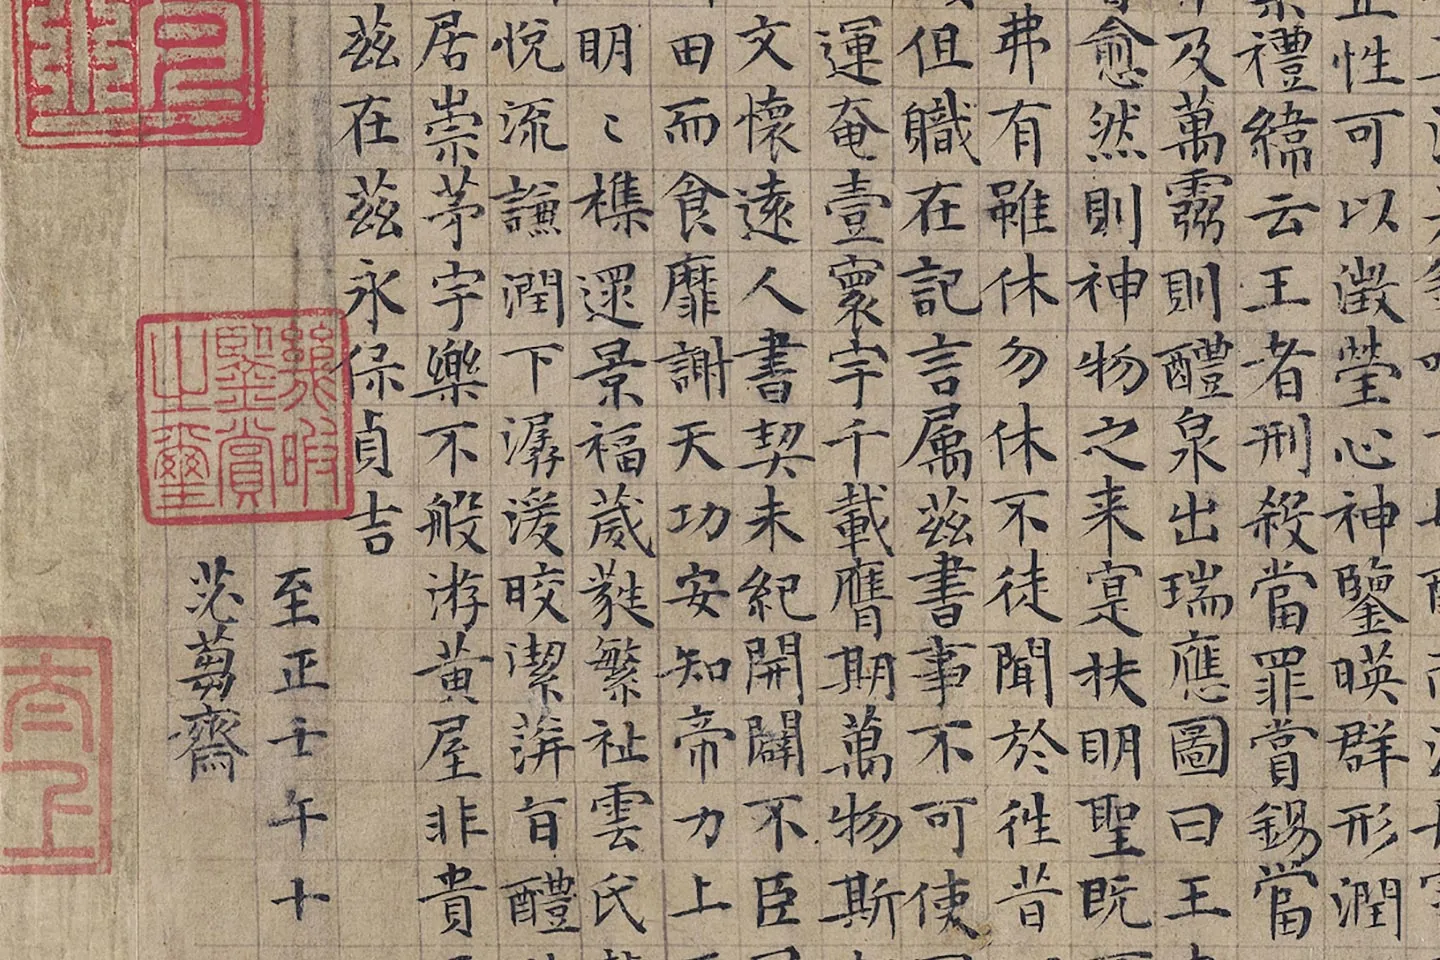 性可以澂瑩心神鑒暎群形潤
禮緯云王者刑殺當罪賞錫當
及萬靈則醴泉出瑞應圖曰王
愈然則神物之来寔扶明聖既
弗有雖休勿休不徒聞於往昔
但職在記言属茲書事不可使
運奄壹寰宇千載膺期萬物斯
文懷遠人書契未紀開闢不臣
田而食靡謝天功安知帝力上
明〻檝還景福葳蕤繁祉雲氏
悅流謙潤下潺湲皎潔蓱旨醴
居崇茅宇樂不般游黃屋非貴
茲在茲永保貞吉
至正壬午十
苾蒭齋
幾暇
鑒賞
之璽